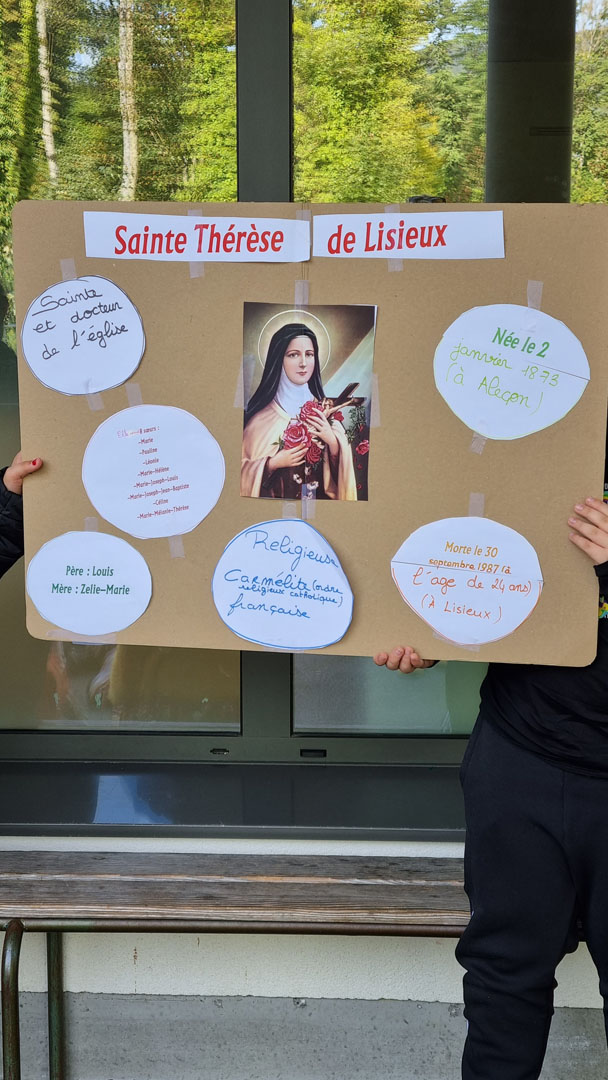 Sainte Thérèse de Lisieux
Sainte
et docteur
de l'église
Née le 2
janvier 1873
(à Aleçon)
8 sœurs :
-Marie
-Pauline
-Léonie
-Marie-Hélène
-Marie-Joseph-Louis
-Marie-Joseph-Jean-Baptiste
-Céline
-Marie-Mélanie-Thérèse
Père : Louis
Mère : Zelie-Marie
Religieuse
Carmélite (ordre
religieux catholique)
française
Morte le 30
septembre 1987 (à
l'age de 24 ans)
(À Lisieux)